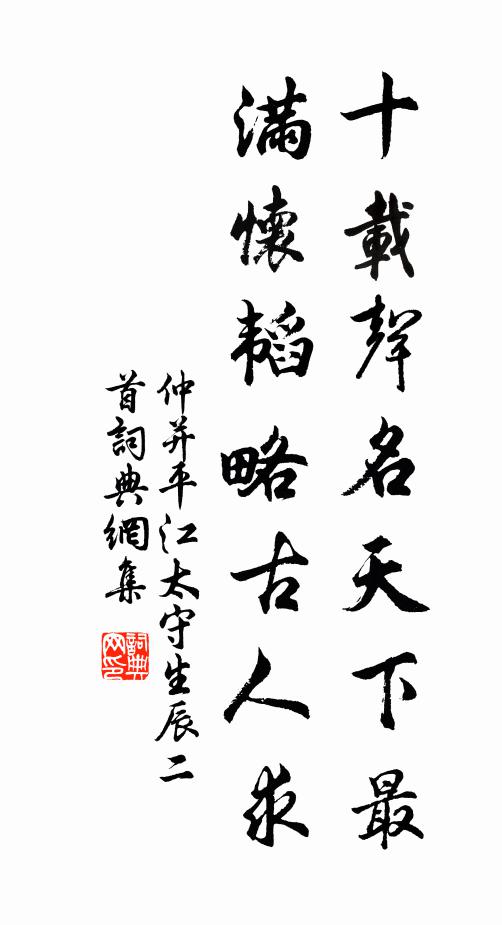 十載聲名天下最
滿懷韜略古人求
仲并平江太守生辰二
首詞典網集
詞典网印